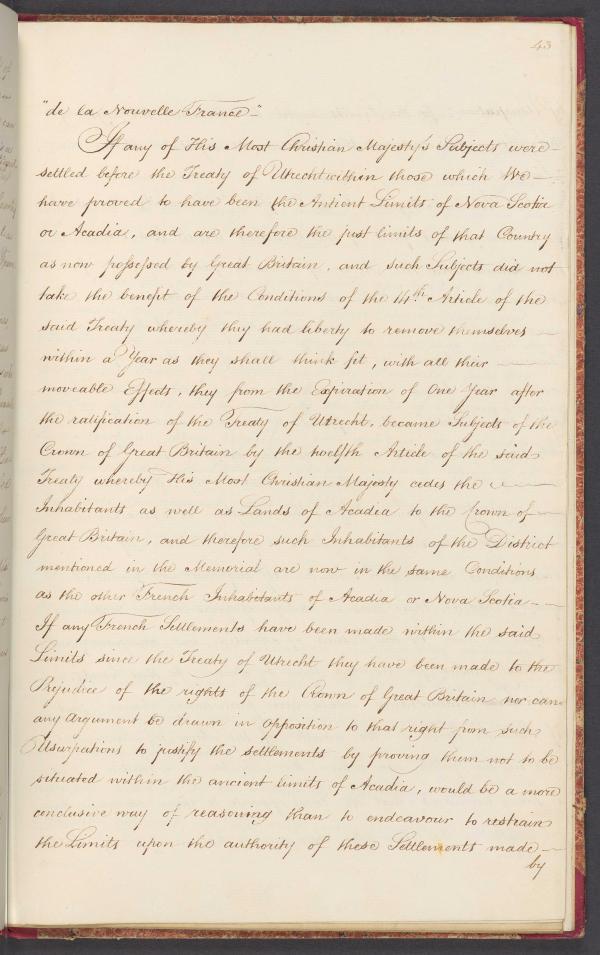 43
"de la Nouvelle France".
If any of His Most Christian Majesty's Subjects were
settled before the Treaty of Utrecht within those which We
have proved to have been the Antient Limits of Nova Scotia
or Acadia, and are therefore the just limits of that Country
as now possessed by Great Britain, and such Subjects did not
take the benefit of the Conditions of the 14th Article of the
said Treaty whereby they had liberty to remove themselves
within a Year as they shall think fit, with all their
moveable Effects, they from the Expiration of One Year after
the ratification of the Treaty of Utrecht, became Subjects of the
Crown of Great Britain by the twelfth Article of the said
Treaty whereby His Most Christian Majesty cedes the
Inhabitants as well as Lands of Acadea to the Crown of
Great Britain, and therefore such Inhabitants of the District
mentioned in the Memorial are now in the same Conditions
as the other French Inhabitants of Acadia or Nova Scotia
If any French Settlements have been made within the said
Limits since the Treaty of Utrecht they have been made to the
Prejudice of the rights of the Crown of Great Britain nor can
any Argument be drawn in opposition to that right from such
Usurpations to justify the settlements by proving them not to be
situated within the ancient limits of Acadia, would be a more
conclusive way of reasoning than to endeavour to restrain
the Limits upon the authority of these Settlements made
by